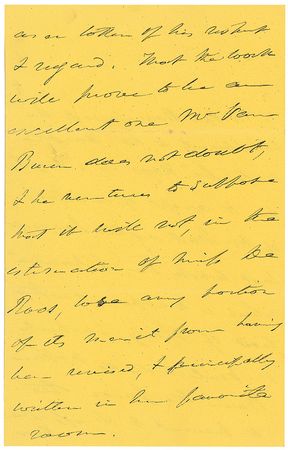 as a token of his respect
& regard. That the work
will prove to be an
excellent one Mr Van
Buren does not doubt,
& he ventures to suppose
that it will not, in the
estimation of Miss De
Roos, lose any portion
of its merit from having
been revised, & principally
written in her favorite
room.